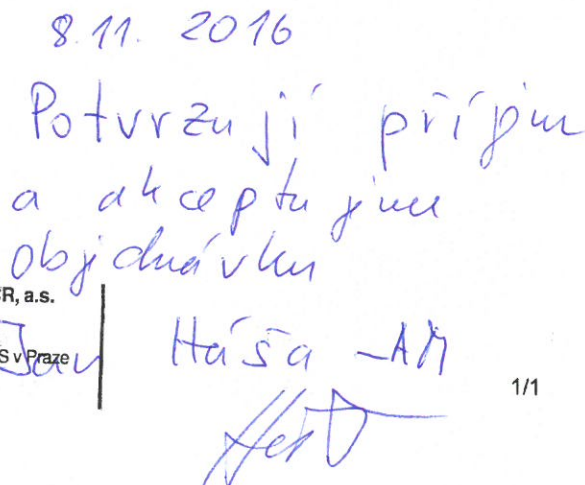 8.11. 2016
Potvrzuji příjem
a akceptujeme
objednávku
ČR, a.s.
S v Praze
Jan Háša - AM
1/1